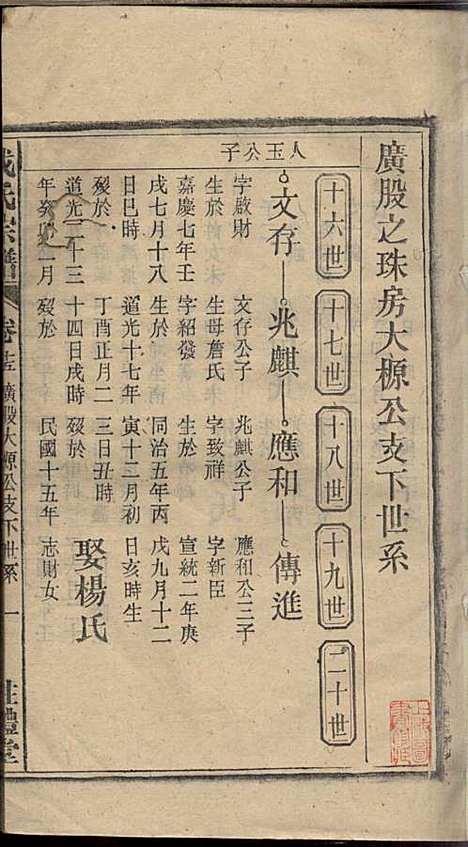 廣股之珠房大榞公支下世系
十六世 十七世 十八世 十九世 二十世
人玉公子
文存 兆麒 應和 傳進
字啟財 文存公子 兆麒公子 應和公三子
生於 生母詹氏 字致祥 字新臣
嘉慶七年壬 字紹發 生於 宣統二年庚
戌七月十八 生於 同治五年丙 戌九月十二
日巳時 道光十七年 寅十二月初 日亥時生
歿於 丁酉正月二 三日丑時 娶楊氏
道光二十三 十四日戌時 歿於
年癸卯一月 歿於 民國十五年 志財女
氏宗譜 廣股大榞公支下世系 一 禮堂